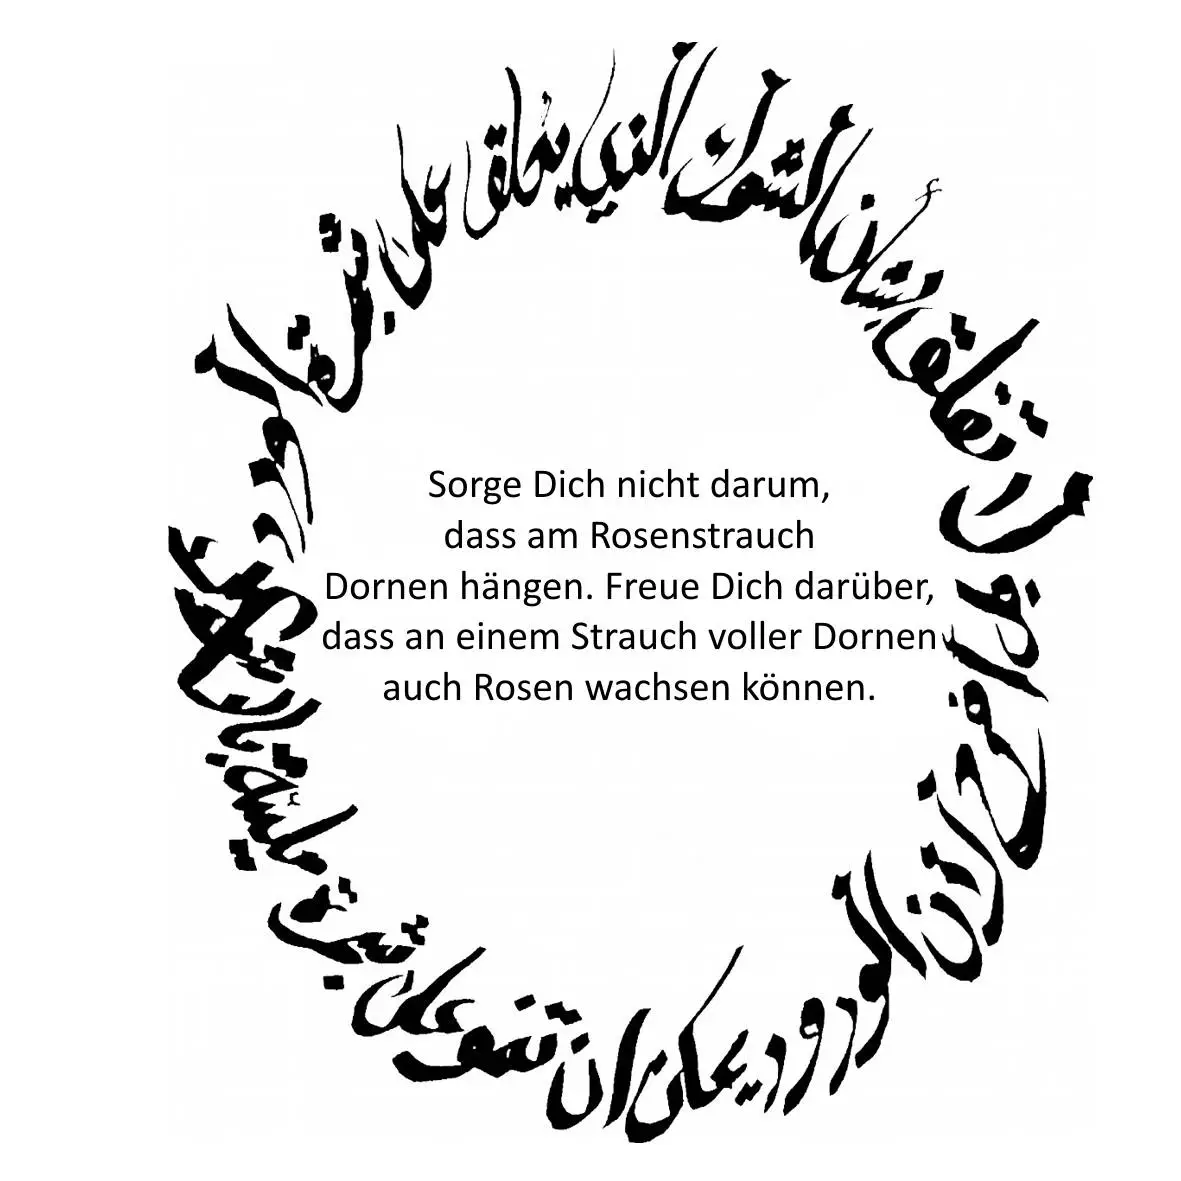 تقلق بشأن الشوك الذي يعلق على
افرح لان الورود يمكن ان تنمو على شجرة مليئة
Sorge Dich nicht darum,
dass am Rosenstrauch
Dornen hängen. Freue Dich darüber,
dass an einem Strauch voller Dornen
auch Rosen wachsen können.